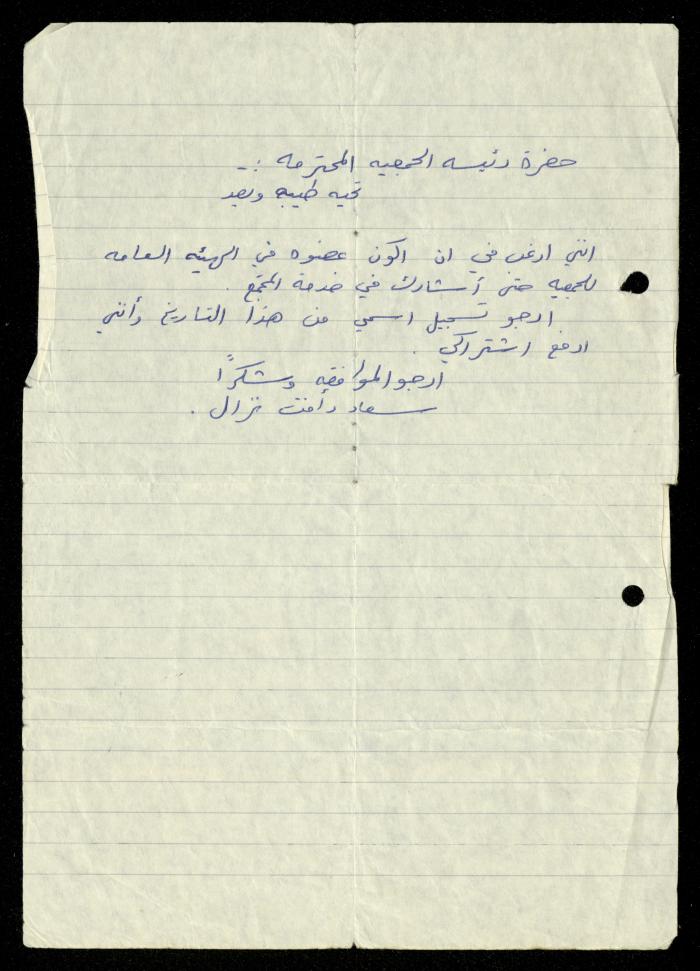 حضرة رئيسه الجمعيه المحترمه :ـ
تحيه طيبه وبعد
انني ارغب في ان اكون عضوه في الهيئه العامه
للجمعيه حتى أشارك في خدمة المجتمع .
ارجو تسجيل اسمي من هذا التاريخ وأنني
ادفع اشتراكي .
ارجو الموافقه وشكراً
سعاد رأفت نزال .